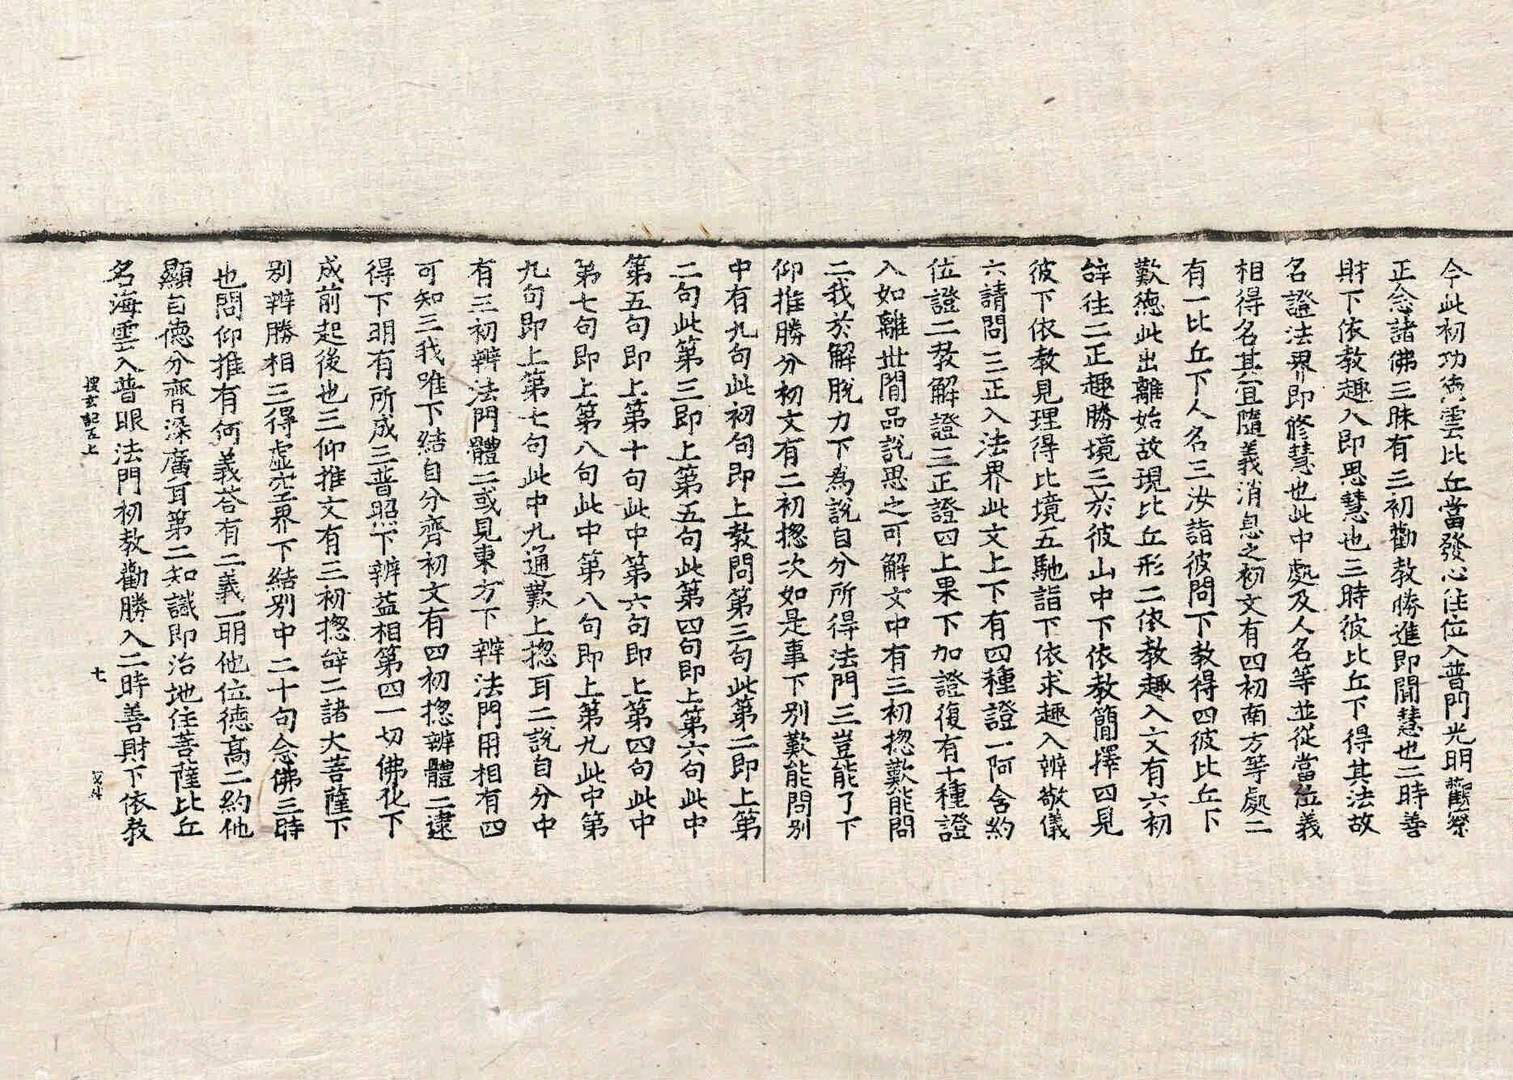 今此初功德雲比丘當發心住位入普門光明觀察
正念諸佛三昧有三初勸教勝進即聞慧也二時善
財下依教趣入即思慧也三時彼比丘下得其法故
名證法界即修慧也此中處及人名等並從當位義
相得名其宜隨義消息之初文有四初南方等處二
有一比丘下人名三汝詣彼問下教得四彼比丘下
歎德此出離始故現比丘形二依教趣入文有六初
辞往二正趣勝境三於彼山中下依教簡擇四見
彼下依教見理得比境五馳詣下依求趣入辨敬儀
六請問三正入法界此文上下有四種證一阿含約
位證二教解證三正證四上果下加證復有十種證
入如離世間品說思之可解文中有三初揔歎能問
二我於解脫力下為說自分所得法門三豈能了下
仰推勝分初文有二初揔次如是事下別歎能問別
中有九句此初句即上教問第三句此第二即上第
二句此第三即上第五句此第四句即上第六句此中
第五句即上第十句此中第六句即上第四句此中
第七句即上第八句此中第八句即上第九此中第
九句即上第七句此中九通歎上揔耳二說自分中
有三初辨法門體二或見東方下辨法門用相有四
可知三我唯下結自分齊初文有四初揔辨體二逮
得下明有所成三普照下辨益相第四一切佛化下
成前起後也三仰推文有三初揔辞二諸大菩薩下
別辨勝相三得虛空界下結別中二十句念佛三昧
也問仰推有何義荅有二義一明他位德高二約他
顯自德分齊深廣耳第二知識即治地住菩薩比丘
名海雲入普眼法門初教勸勝入二時善財下依教
搜玄記五上 七